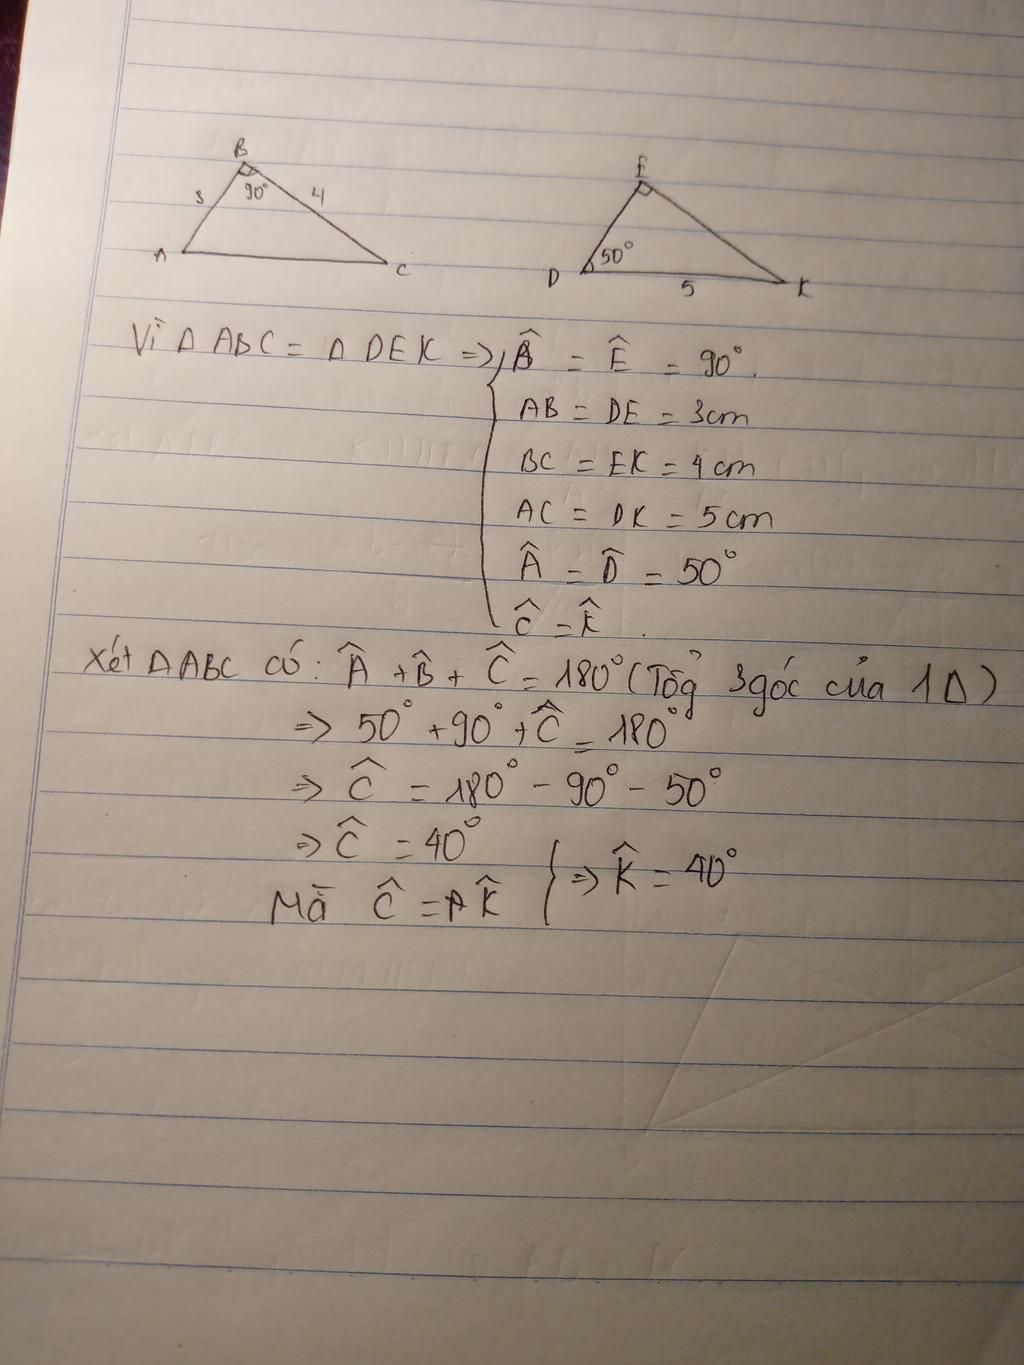 B
E
3
90°
4
50°
A
C
D
5
K
Vì Δ ABC = Δ DEK => B̂ = Ê = 90°.
AB = DE = 3cm
BC = EK = 4cm
AC = DK = 5cm
Â = D̂ = 50°
Ĉ = K̂.
Xét ΔABC có: Â + B̂ + Ĉ = 180° (Tổg 3góc của 1Δ)
=> 50° + 90° + Ĉ = 180°
=> Ĉ = 180° - 90° - 50°
=> Ĉ = 40°
Mà Ĉ = K̂ } => K̂ = 40°